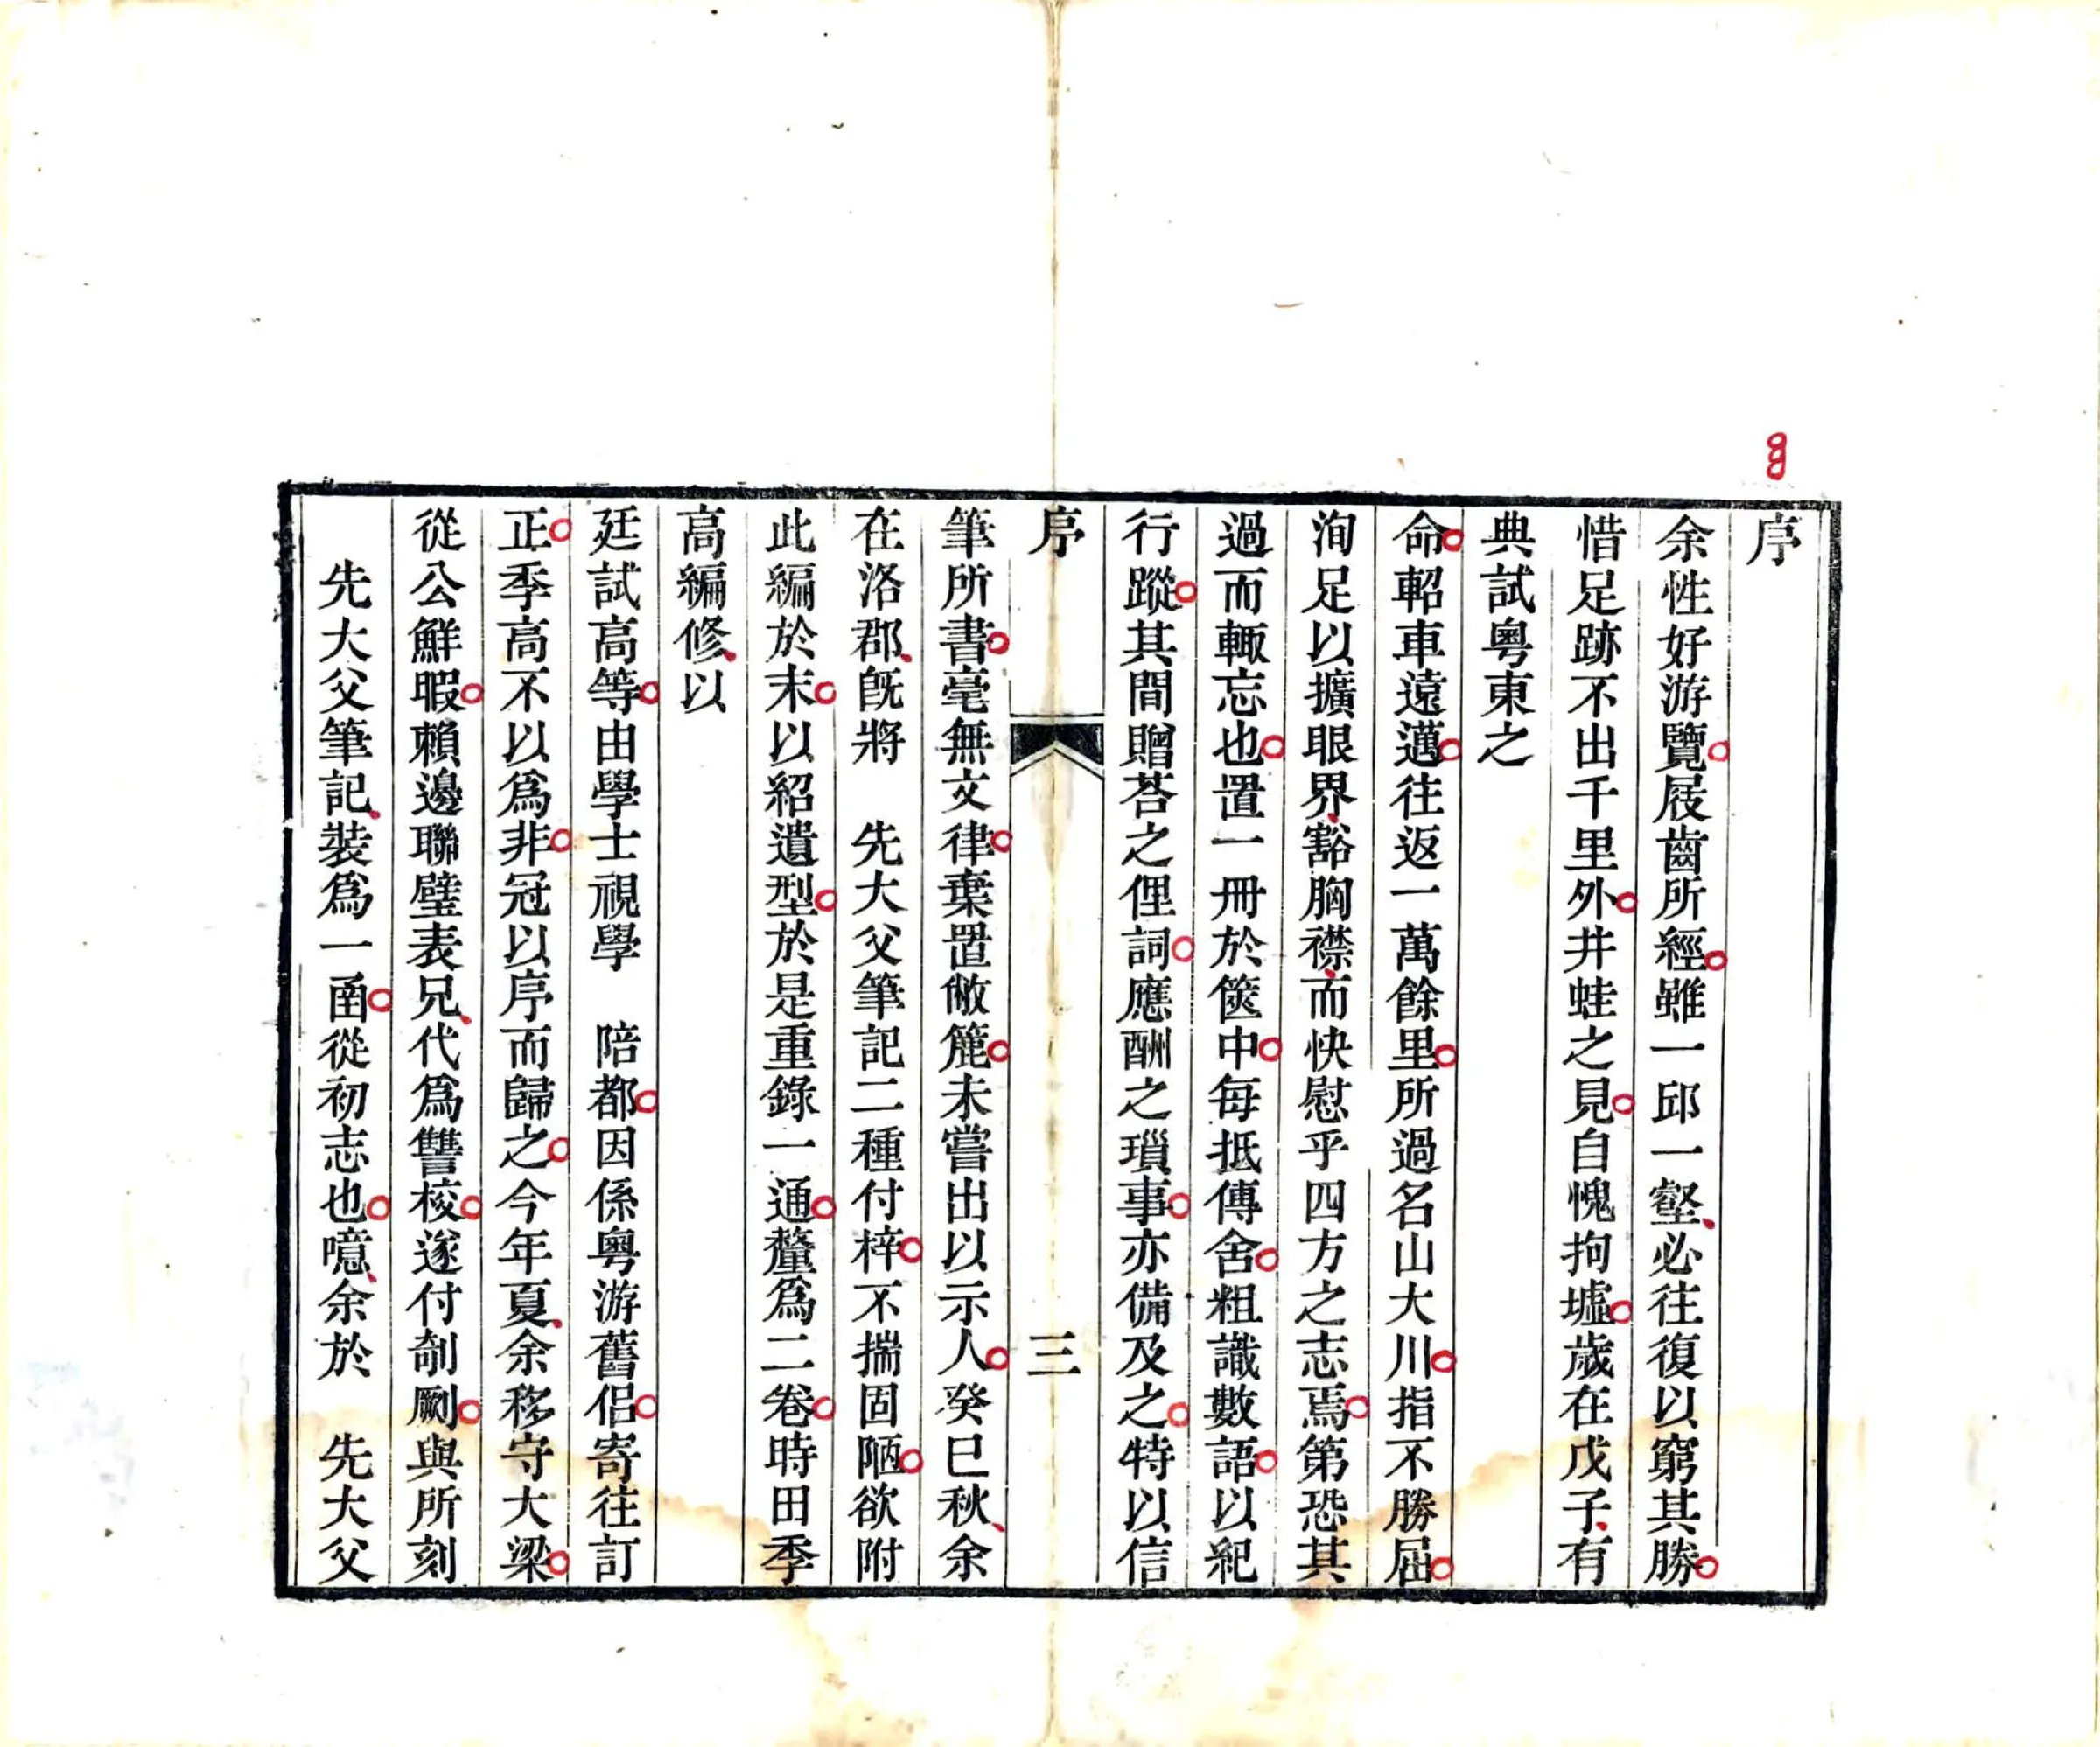 序
余性好游覽屐齒所經雖一邱一壑必往復以窮其勝
惜足跡不出千里外井蛙之見自愧拘墟歲在戊子有
典試粵東之
命軺車遠邁往返一萬餘里所過名山大川指不勝屈
洵足以擴眼界豁胸襟而快慰乎四方之志焉第恐其
過而輙忘也置一冊於篋中每抵傳舍粗識數語以紀
行蹤其間贈荅之俚詞應酬之瑣事亦備及之特以信
序 三
筆所書毫無文律棄置敝簏未嘗出以示人癸巳秋余
在洛郡旣將 先大父筆記二種付梓不揣固陋欲附
此編於末以紹遺型於是重錄一通釐爲二卷時田季
高編修以
廷試高等由學士視學 陪都因係粵游舊侣寄往訂
正季高不以爲非冠以序而歸之今年夏余移守大梁
從公鮮暇賴邊聯璧表兄代爲讐校遂付剞劂與所刻
先大父筆記裝爲一函從初志也噫余於 先大父